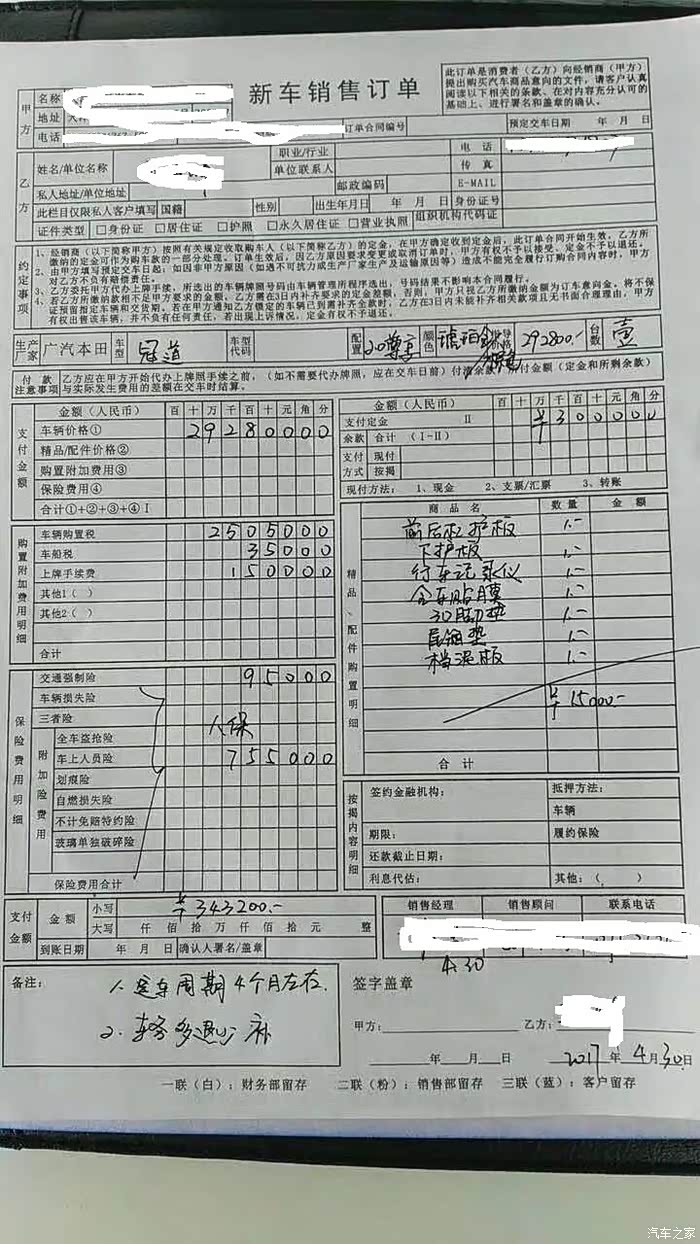 新车销售订单
此订单是消费者（乙方）向经销商（甲方）
提出购买汽车商品意向的文件，请客户认真
阅读以下相关的条款。在对内容充分认可的
基础上、进行署名和盖章的确认。
甲方
名称
地址
电话
订单合同编号
预定交车日期 年 月 日
乙方
姓名/单位名称
职业/行业
单位联系人
电话
传真
私人地址/单位地址
邮政编码
E-MAIL
此栏目仅限私人客户填写 国籍 性别 出生年月日 年 月 日 身份证号
证件类型 □身份证 □居住证 □护照 □永久居住证 □营业执照 组织机构代码证
约定事项
1、经销商（以下简称甲方）按照有关规定收取购车人（以下简称乙方）的定金，在甲方确定收到定金后，此订单合同开始生效。乙方所
缴纳的定金可作为购车款的一部分处理。订单生效后，因乙方原因要求变更或取消订单时，甲方有权不予以接受、定金不予以退还。
2、由甲方填写预定交车日起，如因非甲方原因（如遇不可抗力或生产厂家生产及运输原因等）造成不能完全履行订购合同内容时，甲方
对乙方不负有赔偿责任。
3、乙方委托甲方代办上牌手续，所选出的车辆牌照号码由车辆管理所程序选出，号码结果不影响本合同履行。
4、若乙方所缴纳款相不足甲方要求的金额，乙方需在3日内补齐要求的定金差额，否则，甲方只视乙方所缴纳金额为订车意向金，将不保
证预留指定车辆和交货期，若在甲方通知乙方锁定的车辆已到需补齐全款时，乙方在3日内未能补齐相关款项且无书面合理理由，甲方
有权出售该车辆，并不负有任何责任，若出现上诉情况，定金有权不予退还。
生产厂家 广汽本田 车型 冠道 车型代码 配置 2.0尊享 颜色 琥珀金 292800.- 台数 壹
付款注意事项
乙方应在甲方开始代办上牌照手续之前，（如不需要代办牌照，应在交车日前）付清余款
付金额（定金和所剩余款）
与实际发生费用的差额在交车时结算。
支付金额
金额（人民币） 百 十 万 千 百 十 元 角 分
车辆价格① 29280000
精品/配件价格②
购置附加费用③
保险费用④
合计①+②+③+④ I
金额（人民币） 百 十 万 千 百 十 元 角 分
支付定金 II ¥300000
余款 合计（I-II）
支付方式 现付
按揭
现付方法： 1、现金 2、支票/汇票 3、转账
购置附加费用明细
车辆购置税 2505000
车船税 35000
上牌手续费 150000
其他1（ ）
其他2（ ）
合计
精品、配件购置明细
商品名 数量 金额
前后杠护板 1.-
下护板 1.-
行车记录仪 1.-
全车贴膜 1.-
3D脚垫 1.-
尾箱垫 1.-
档泥板 1.-
¥15000.-
合计
保险费用明细
交通强制险 95000
车辆损失险
三者险 人保
附加险费用
全车盗抢险
车上人员险 755000
划痕险
自燃损失险
不计免赔特约险
玻璃单独破碎险
保险费用合计
按揭内容明细
签约金融机构： 抵押方法：
车辆
期限： 履约保险
还款截止日期：
利息代估： 其他：（ ）
支付金额
金额 小写 ¥343200.-
大写 仟 佰 拾 万 仟 佰 拾 元 整
到账日期 年 月 日 确认人署名/盖章
销售经理 销售顾问 联系电话
4.30
备注： 1、定车周期4个月左右.
2、车务多退少补
签字盖章
甲方： 乙方：
年 月 日 2017年4月30日
一联（白）：财务部留存 二联（粉）：销售部留存 三联（蓝）：客户留存
汽车之家